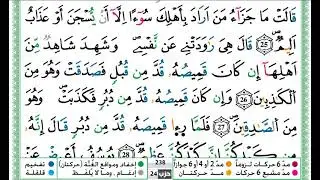 قَالَتْ مَا جَزَآءُ مَنْ أَرَادَ بِأَهْلِكَ سُوٓءًا اِلَّآ أَنْ يُّسْجَنَ أَوْ عَذَابٌ
اَلِيمٌ 25 قَالَ هِيَ رَٰوَدَتْنِي عَن نَّفْسِي وَشَهِدَ شَاهِدٌ مِّنْ
أَهْلِهَآ إِن كَانَ قَمِيصُهُ قُدَّ مِن قُبُلٍ فَصَدَقَتْ وَهُوَ مِنَ
ٱلْكَٰذِبِينَ 26 وَإِن كَانَ قَمِيصُهُ قُدَّ مِن دُبُرٍ فَكَذَبَتْ وَهُوَ
مِنَ ٱلصَّٰدِقِينَ 27 فَلَمَّا رَءَا قَمِيصَهُ قُدَّ مِن دُبُرٍ قَالَ إِنَّهُ
28 يُوسُفُ أَعْرِضْ عَنْ
مدّ 6 حركات لزوماً مدّ 2 أو 4 أو 6 جوازاً إخفاء ومواقع الغُنَّة (حركتان) تفخيم
مدّ مشبع 6 حركات مدّ حركتان إدغام، وما لا يُلفظ قلقلة
238
حزب 24